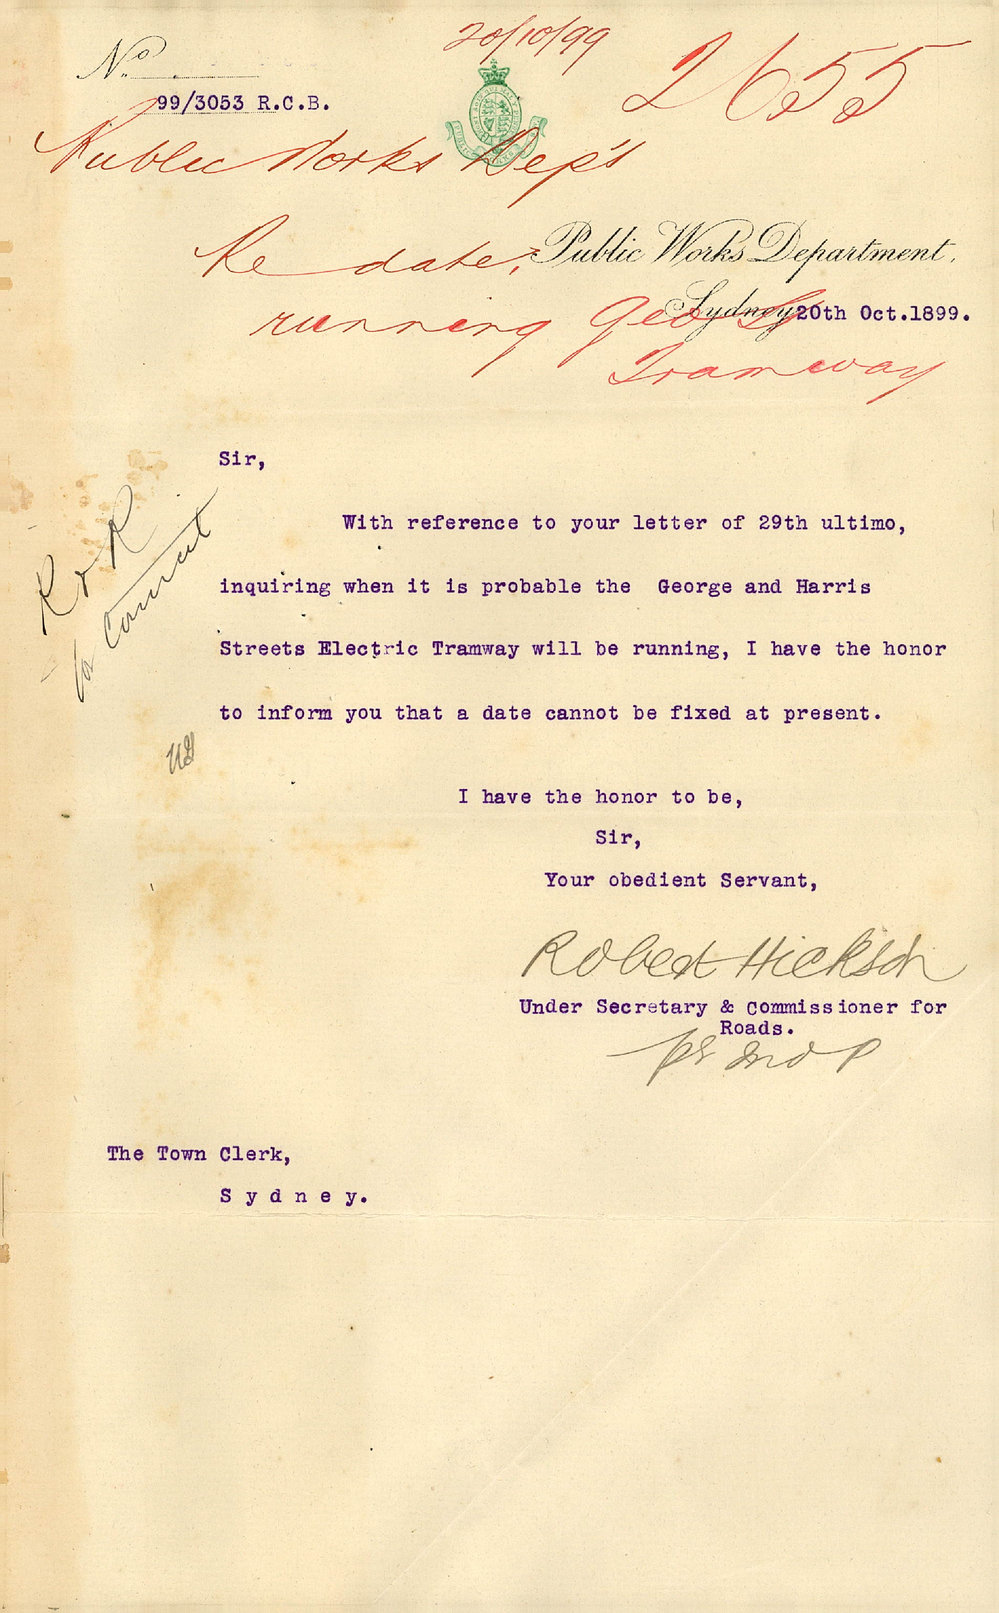 20/10/99
2655
No.
99/3053 R.C.B.
Public Works Dep't
Public Works Department,
Re date,
Sydney 20th Oct.1899.
running Geo St
Tramway
Sir,
With reference to your letter of 29th ultimo,
inquiring when it is probable the George and Harris
Streets Electric Tramway will be running, I have the honor
to inform you that a date cannot be fixed at present.
I have the honor to be,
Sir,
Your obedient Servant,
Robert Hickson
Under Secretary & Commissioner for
Roads.
The Town Clerk,
Sydney.